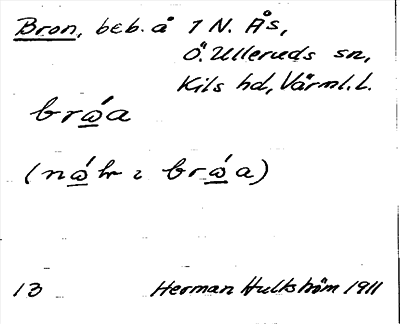 Bron, beb. å 1 N. Ås,
Ö. Ulleruds sn,
Kils hd, Värml. l.
brώ̲a
(nώ̲hr ı brώ̲a)
13 Herman Hultström 1911